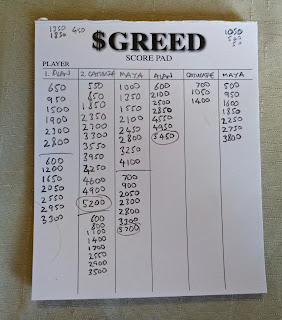 1350 450
1850
1050
$GREED
SCORE PAD
PLAYER
1. ALAN 2. CATHUSE MAYA ALAN CATHUSE MAYA
650 550 1000 600 700 500
950 850 1350 2100 1050 950
1500 1850 1550 2500 1400 1600
1900 2350 2100 2850 1850
2300 2700 2450 4550 2250
2800 3300 2800 4950 2750
600 3550 3250 5450 3800
1200 3950 4100
1650 4250
2050 4600 700
2550 4900 900
2950 5200 2050
3300 600 2300
800 2800
1100 3300
1400 3700
1700
2550
2900
3500